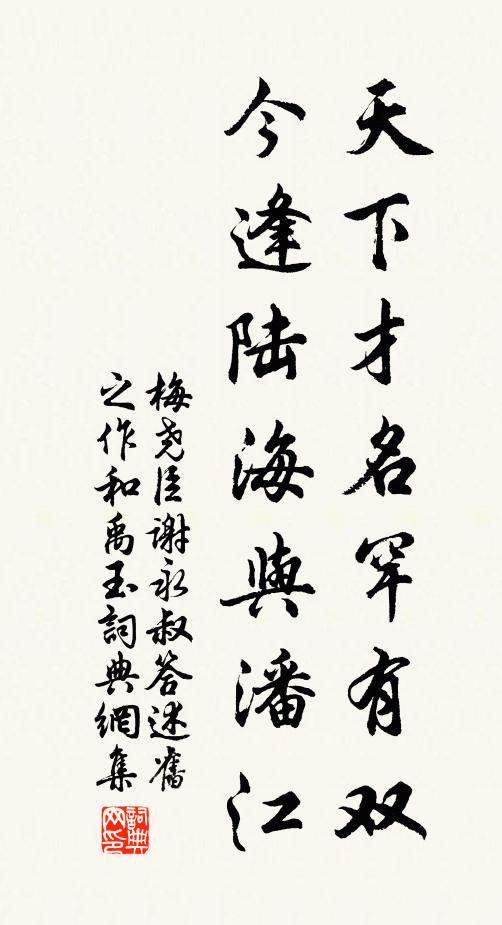 天下才名罕有双
今逢陆海與潘江
梅尧臣谢永叔答述舊
之作和禹玉詞典網集
詞典网印